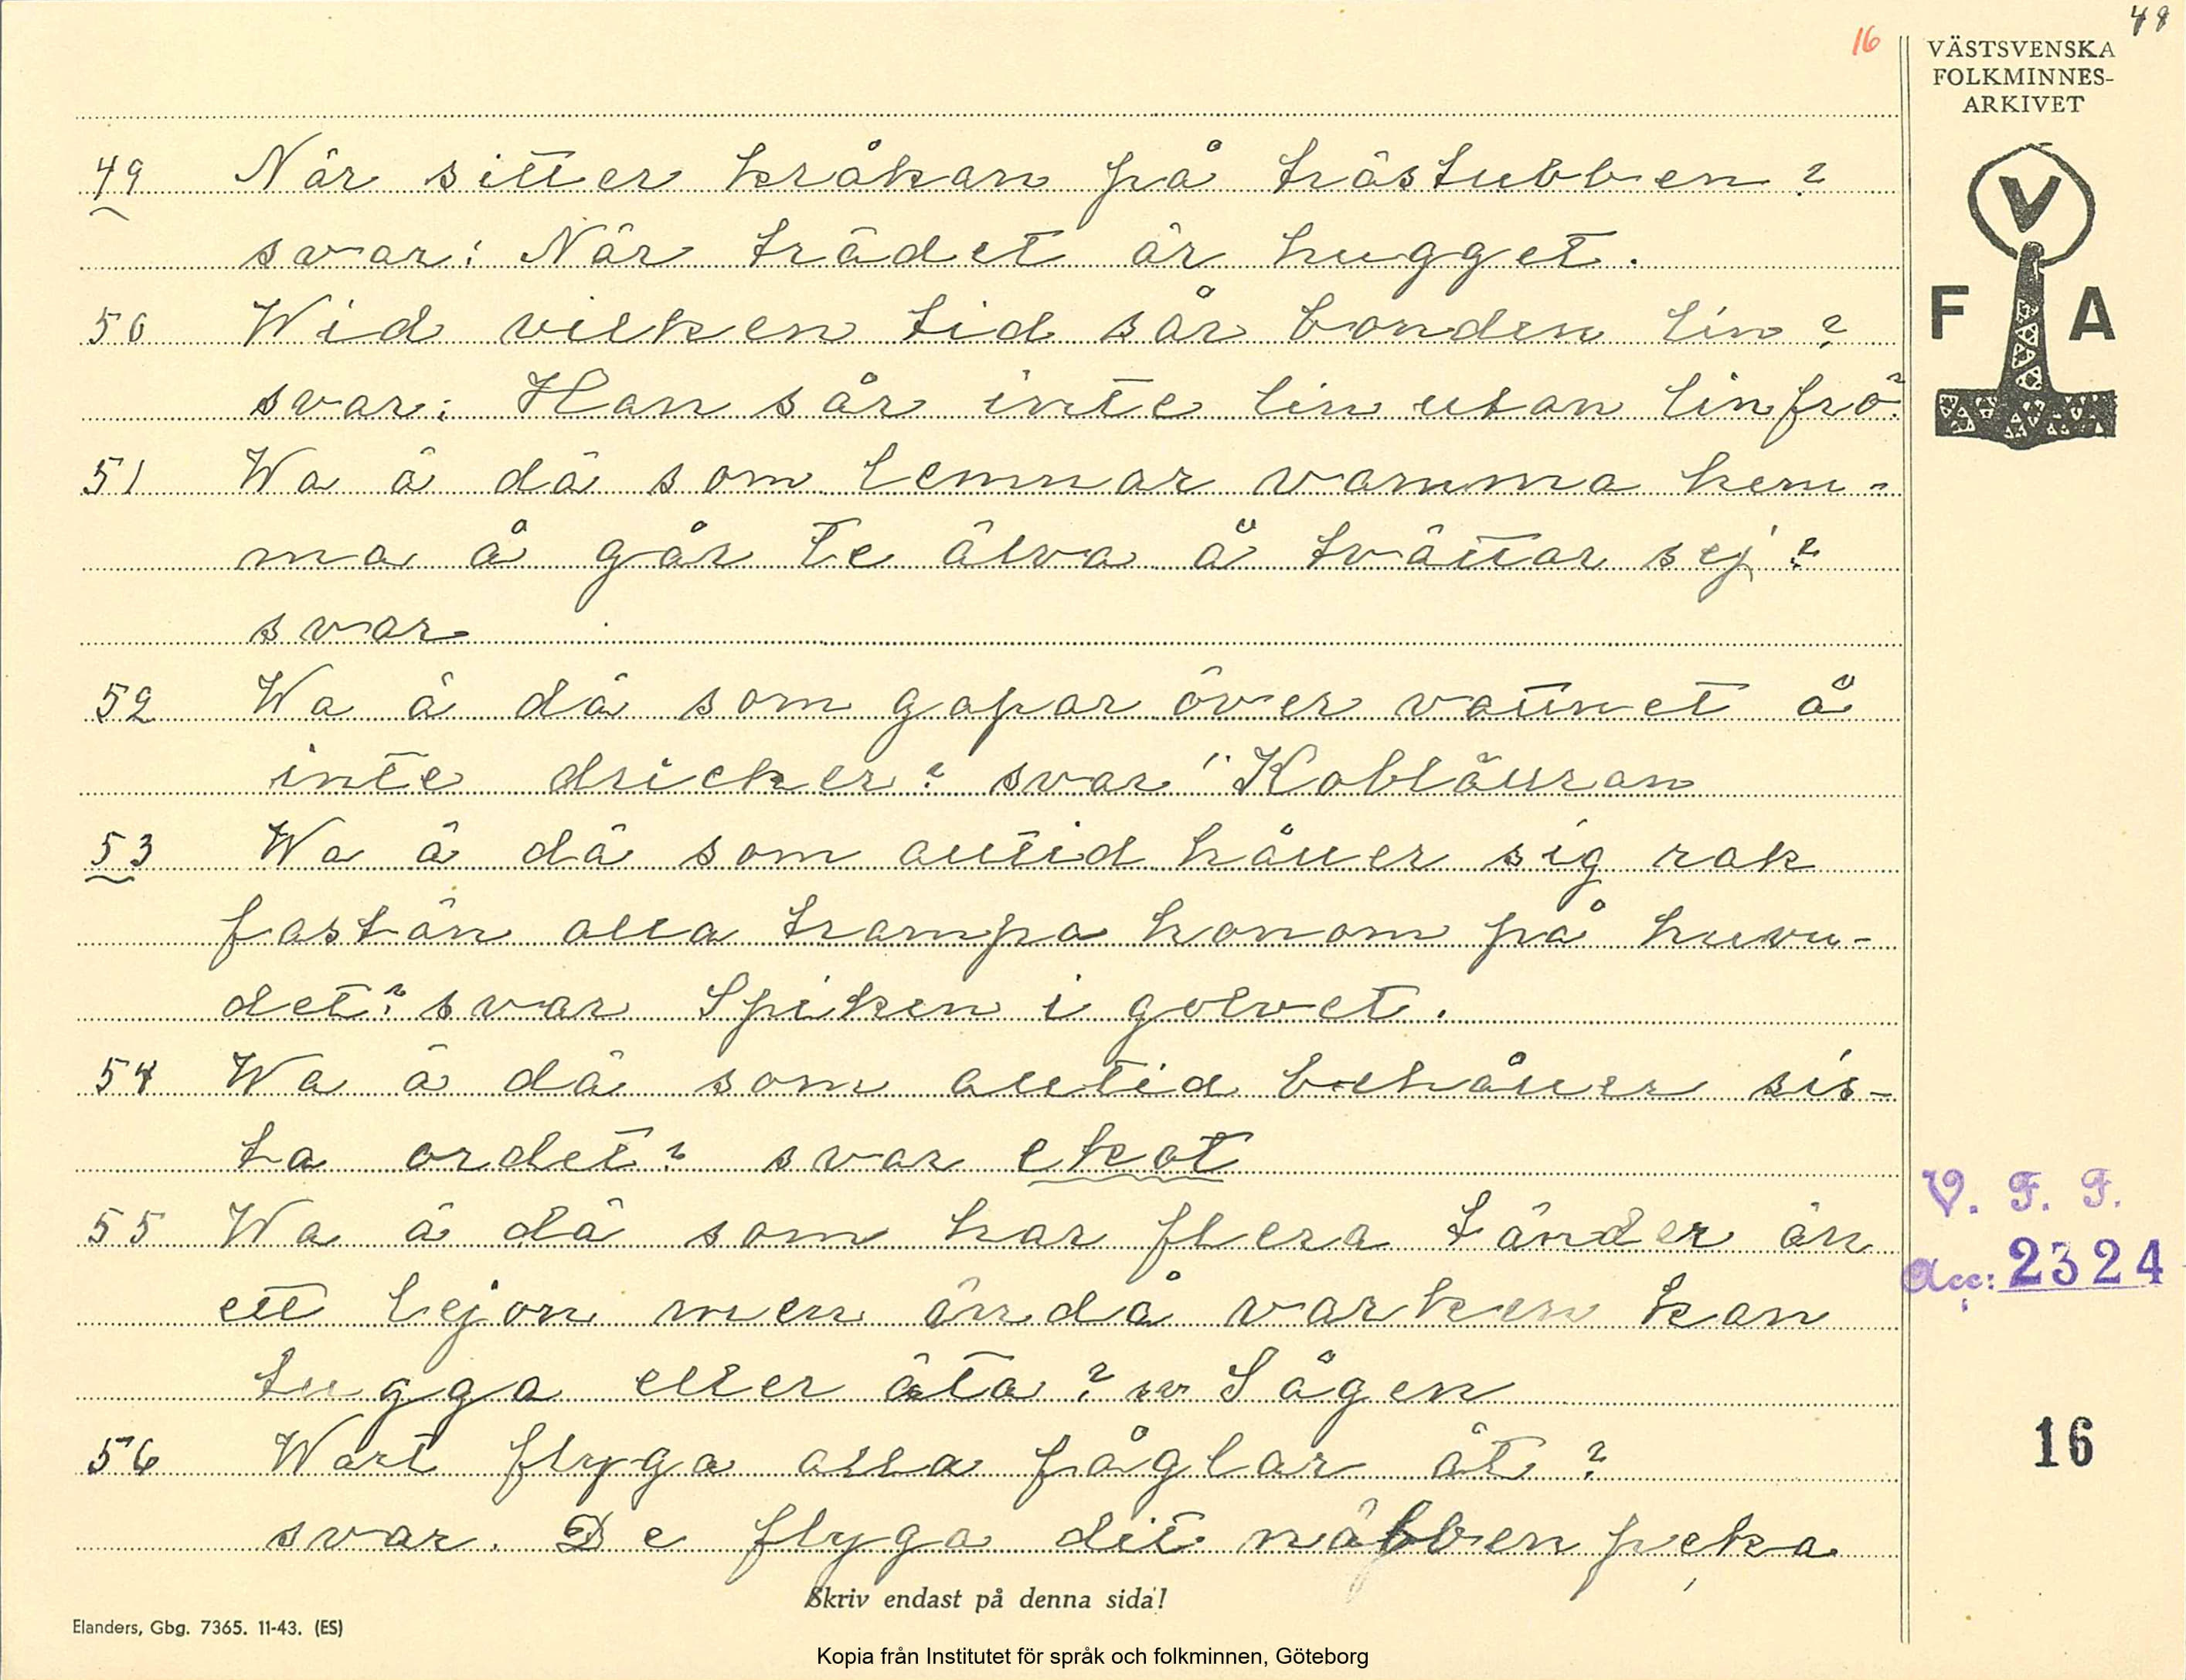 48
16
VÄSTSVENSKA
FOLKMINNES-
ARKIVET
V
F A
49 När sitter kråkan på trästubben?
svar: När trädet är hugget.
50 Wid vilken tid sår bonden lin?
svar: Han sår inte lin utan linfrö.
51 Wa ä dä som lemnar vamma hem-
ma å går te älva å tvättar sej?
svar
52 Wa ä dä som gapar över vattnet å
inte dricker? svar "Koblällran
53 Wa ä dä som alltid håller sig rak
fastän alla trampa honom på huvu-
det? svar Spiken i golvet.
54 Wa ä dä som alltid behåller sis-
ta ordet? svar ekot
55 Wa ä dä som har flera tänder än
ett lejon men ändå varken kan
tugga eller äta? sv Sågen
56 Wart flyga alla fåglar åt?
svar. De flyga dit näbben peka
V. F. F.
Acc: 2324
16
Skriv endast på denna sida!
Elanders, Gbg. 7365. 11-43. (ES)
Kopia från Institutet för språk och folkminnen, Göteborg